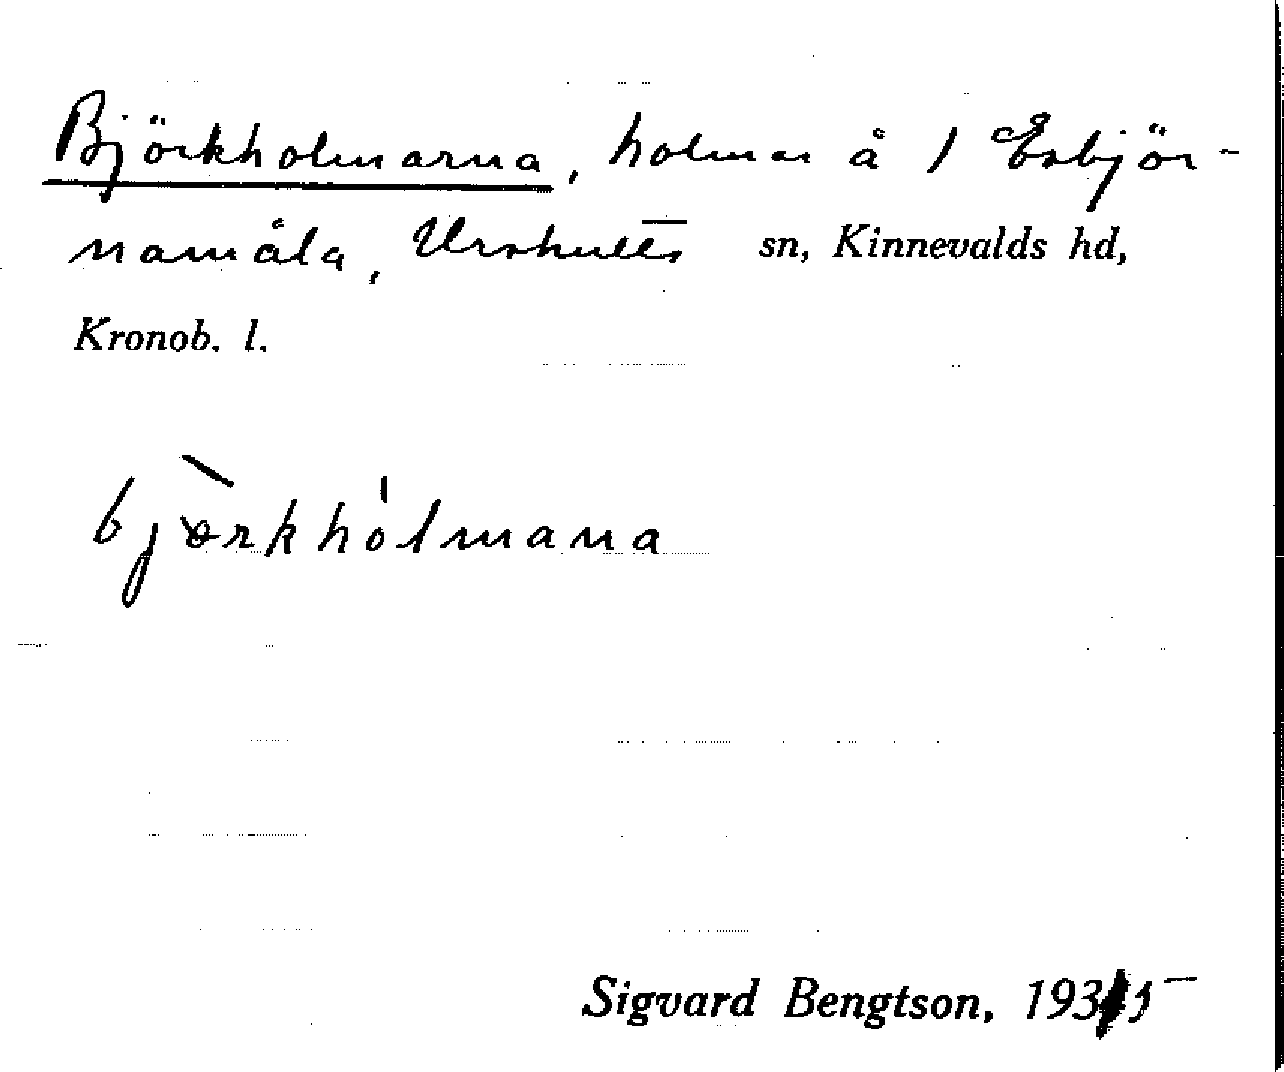 Björkholmarna, holmar å 1 Esbjör-
namåla, Urshults sn, Kinnevalds hd,
Kronob. l.
bjò̀rkhòlmana
Sigvard Bengtson, 1935